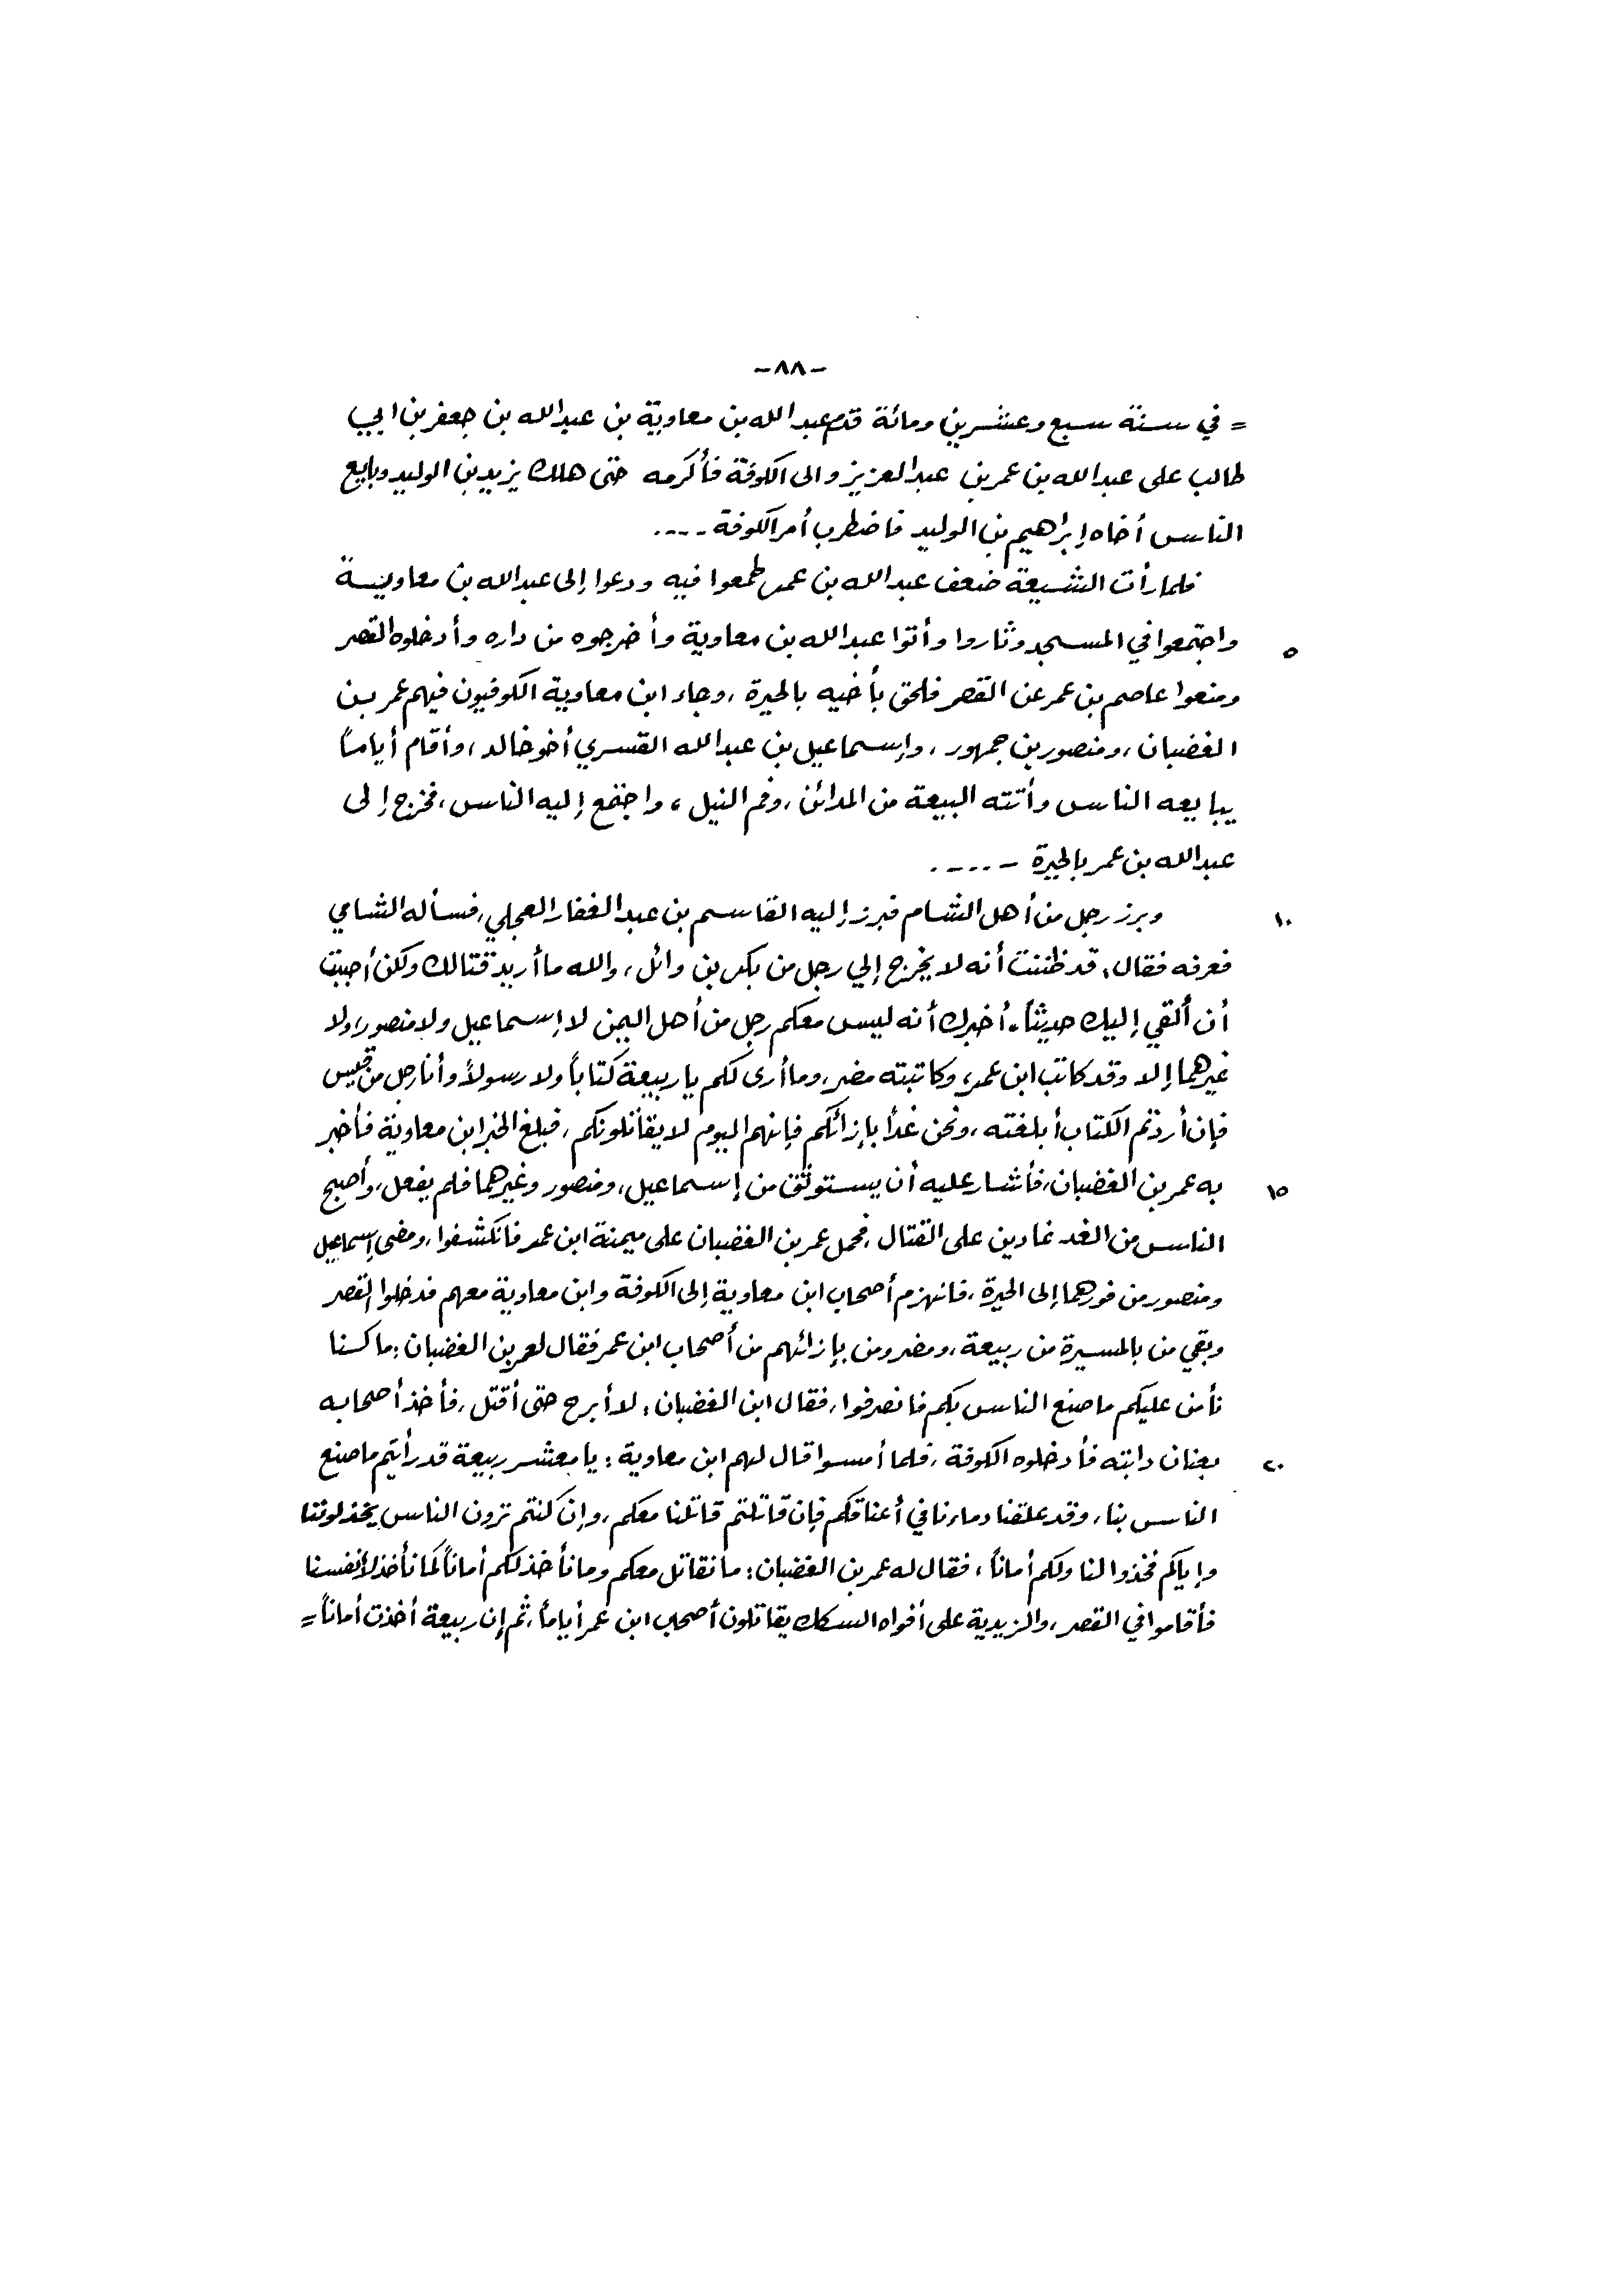 -٨٨-
= في سنة سبع وعشرين ومائة قدم عبد الله بن معاوية بن عبد الله بن جعفر بن ابي
طالب على عبد الله بن عمر بن عبد العزيز والى الكوفة فأكرمه حتى هلك يزيد بن الوليد وبايع
الناس أخاه إبراهيم بن الوليد فاضطرب أمر الكوفة ....
فلما رأت الشيعة ضعف عبد الله بن عمر طمعوا فيه ودعوا إلى عبد الله بن معاوية
٥ واجتمعوا في المسجد وثاروا وأتوا عبد الله بن معاوية وأخرجوه من داره وأدخلوه القصر
ومنعوا عاصم بن عمر عن القصر فلحق بأخيه بالحيرة، وجاء ابن معاوية الكوفيون فيهم عمر بن
الغضبان، ومنصور بن جمهور، وإسماعيل بن عبد الله القسري أخو خالد، وأقام أياماً
يبايعه الناس وأتته البيعة من المدائن، وفم النيل، واجتمع إليه الناس، فخرج إلى
عبد الله بن عمر بالحيرة -....
١٠ وبرز رجل من أهل الشام فبرز إليه القاسم بن عبد الغفار العجلي، فسأله الشامي
فعرفه فقال: قد ظننت أنه لا يخرج إلي رجل من بكر بن وائل، والله ما أريد قتالك ولكن أحببت
أن ألقي إليك حديثاً، أخبرك أنه ليس معكم رجل من أهل اليمن لا إسماعيل ولا منصور، ولا
غيرهما إلا وقد كاتب ابن عمر، وكاتبته مضر، وما أرى لكم يا ربيعة كتاباً ولا رسولاً وأنا رجل من قيس
فإن أردتم الكتاب أبلغته، ونحن غداً بإزائكم فإنهم اليوم لا يقاتلونكم، فبلغ الخبر ابن معاوية فأخبر
١٥ به عمر بن الغضبان، فأشار عليه أن يستوثق من إسماعيل، ومنصور وغيرهما فلم يفعل، وأصبح
الناس من الغد غادين على القتال، فحمل عمر بن الغضبان على ميمنة ابن عمر فانكشفوا، ومضى إسماعيل
ومنصور من فورهما إلى الحيرة، فانهزم أصحاب ابن معاوية إلى الكوفة وابن معاوية معهم فدخلوا القصر
وبقي من بالميسرة من ربيعة، ومضر ومن بإزائهم من أصحاب ابن عمر فقال لعمر بن الغضبان: ما كنا
نأمن عليكم ما صنع الناس بكم فانصرفوا، فقال ابن الغضبان: لا أبرح حتى أقتل، فأخذ أصحابه
٢٠ بعنان دابته فأدخلوه الكوفة، فلما أمسوا قال لهم ابن معاوية: يا معشر ربيعة قد رأيتم ما صنع
الناس بنا، وقد علقنا دماءنا في أعناقكم فإن قاتلتم قاتلنا معكم، وإن كنتم ترون الناس يخذلوننا
وإياكم فخذوا لنا ولكم أماناً، فقال له عمر بن الغضبان: ما نقاتل معكم وما نأخذ لكم أماناً كما نأخذ لأنفسنا
فأقاموا في القصر، والزيدية على أفواه السكك يقاتلون أصحاب ابن عمر أياماً، ثم إن ربيعة أخذت أماناً =